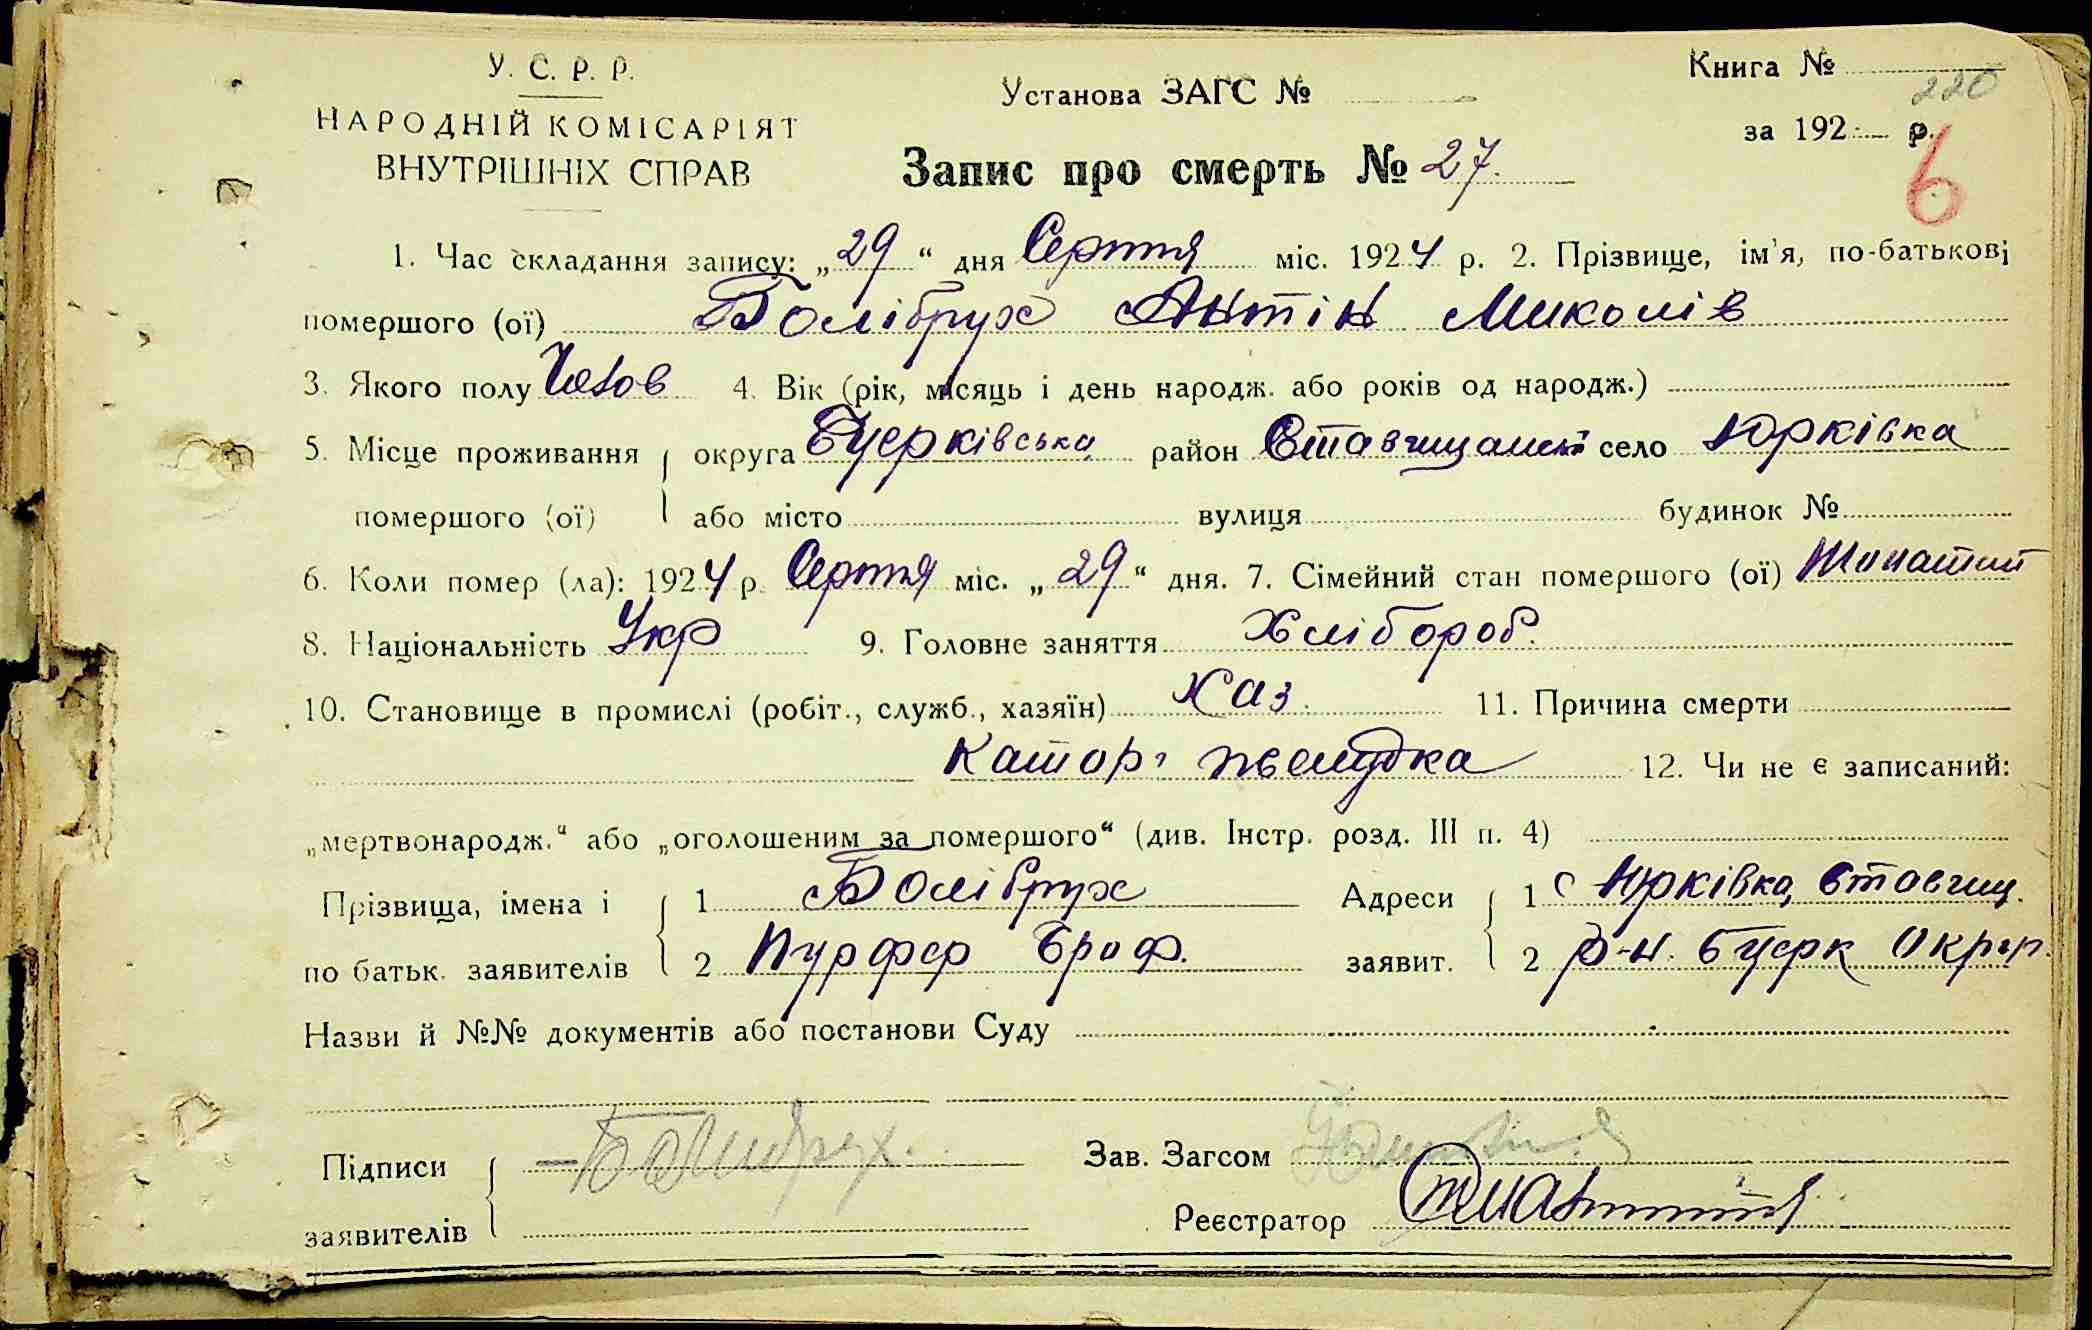 У. С. Р. Р.
НАРОДНІЙ КОМІСАРІЯТ
ВНУТРІШНІХ СПРАВ
Установа ЗАГС №
Книга №
220
за 192 р.
6
Запис про смерть № 27.
1. Час складання запису: „29“ дня Серпня міс. 1924 р. 2. Прізвище, ім'я, по-батькові
помершого (ої) Болібрух Антін Миколів
3. Якого полу Чолов 4. Вік (рік, місяць і день народж. або років од народж.)
5. Місце проживання округа Бцерківська район Ставищанськ село Юрківка
помершого (ої) або місто вулиця будинок №
6. Коли помер (ла): 1924 р. Серпня міс. „29“ дня. 7. Сімейний стан помершого (ої) Жонатий
8. Національність Укр 9. Головне заняття Хлібороб.
10. Становище в промислі (робіт., служб., хазяїн) Хаз. 11. Причина смерти
Катор. желудка 12. Чи не є записаний:
„мертвонародж.“ або „оголошеним за помершого“ (див. Інстр. розд. III п. 4)
Прізвища, імена і 1 Болібрух Адреси 1 с Юрківка, Ставищ.
по батьк. заявителів 2 заявит. 2 р-н. Бцерк Округи.
Назви й №№ документів або постанови Суду
Підписи Болибрух. Зав. Загсом
заявителів Реєстратор